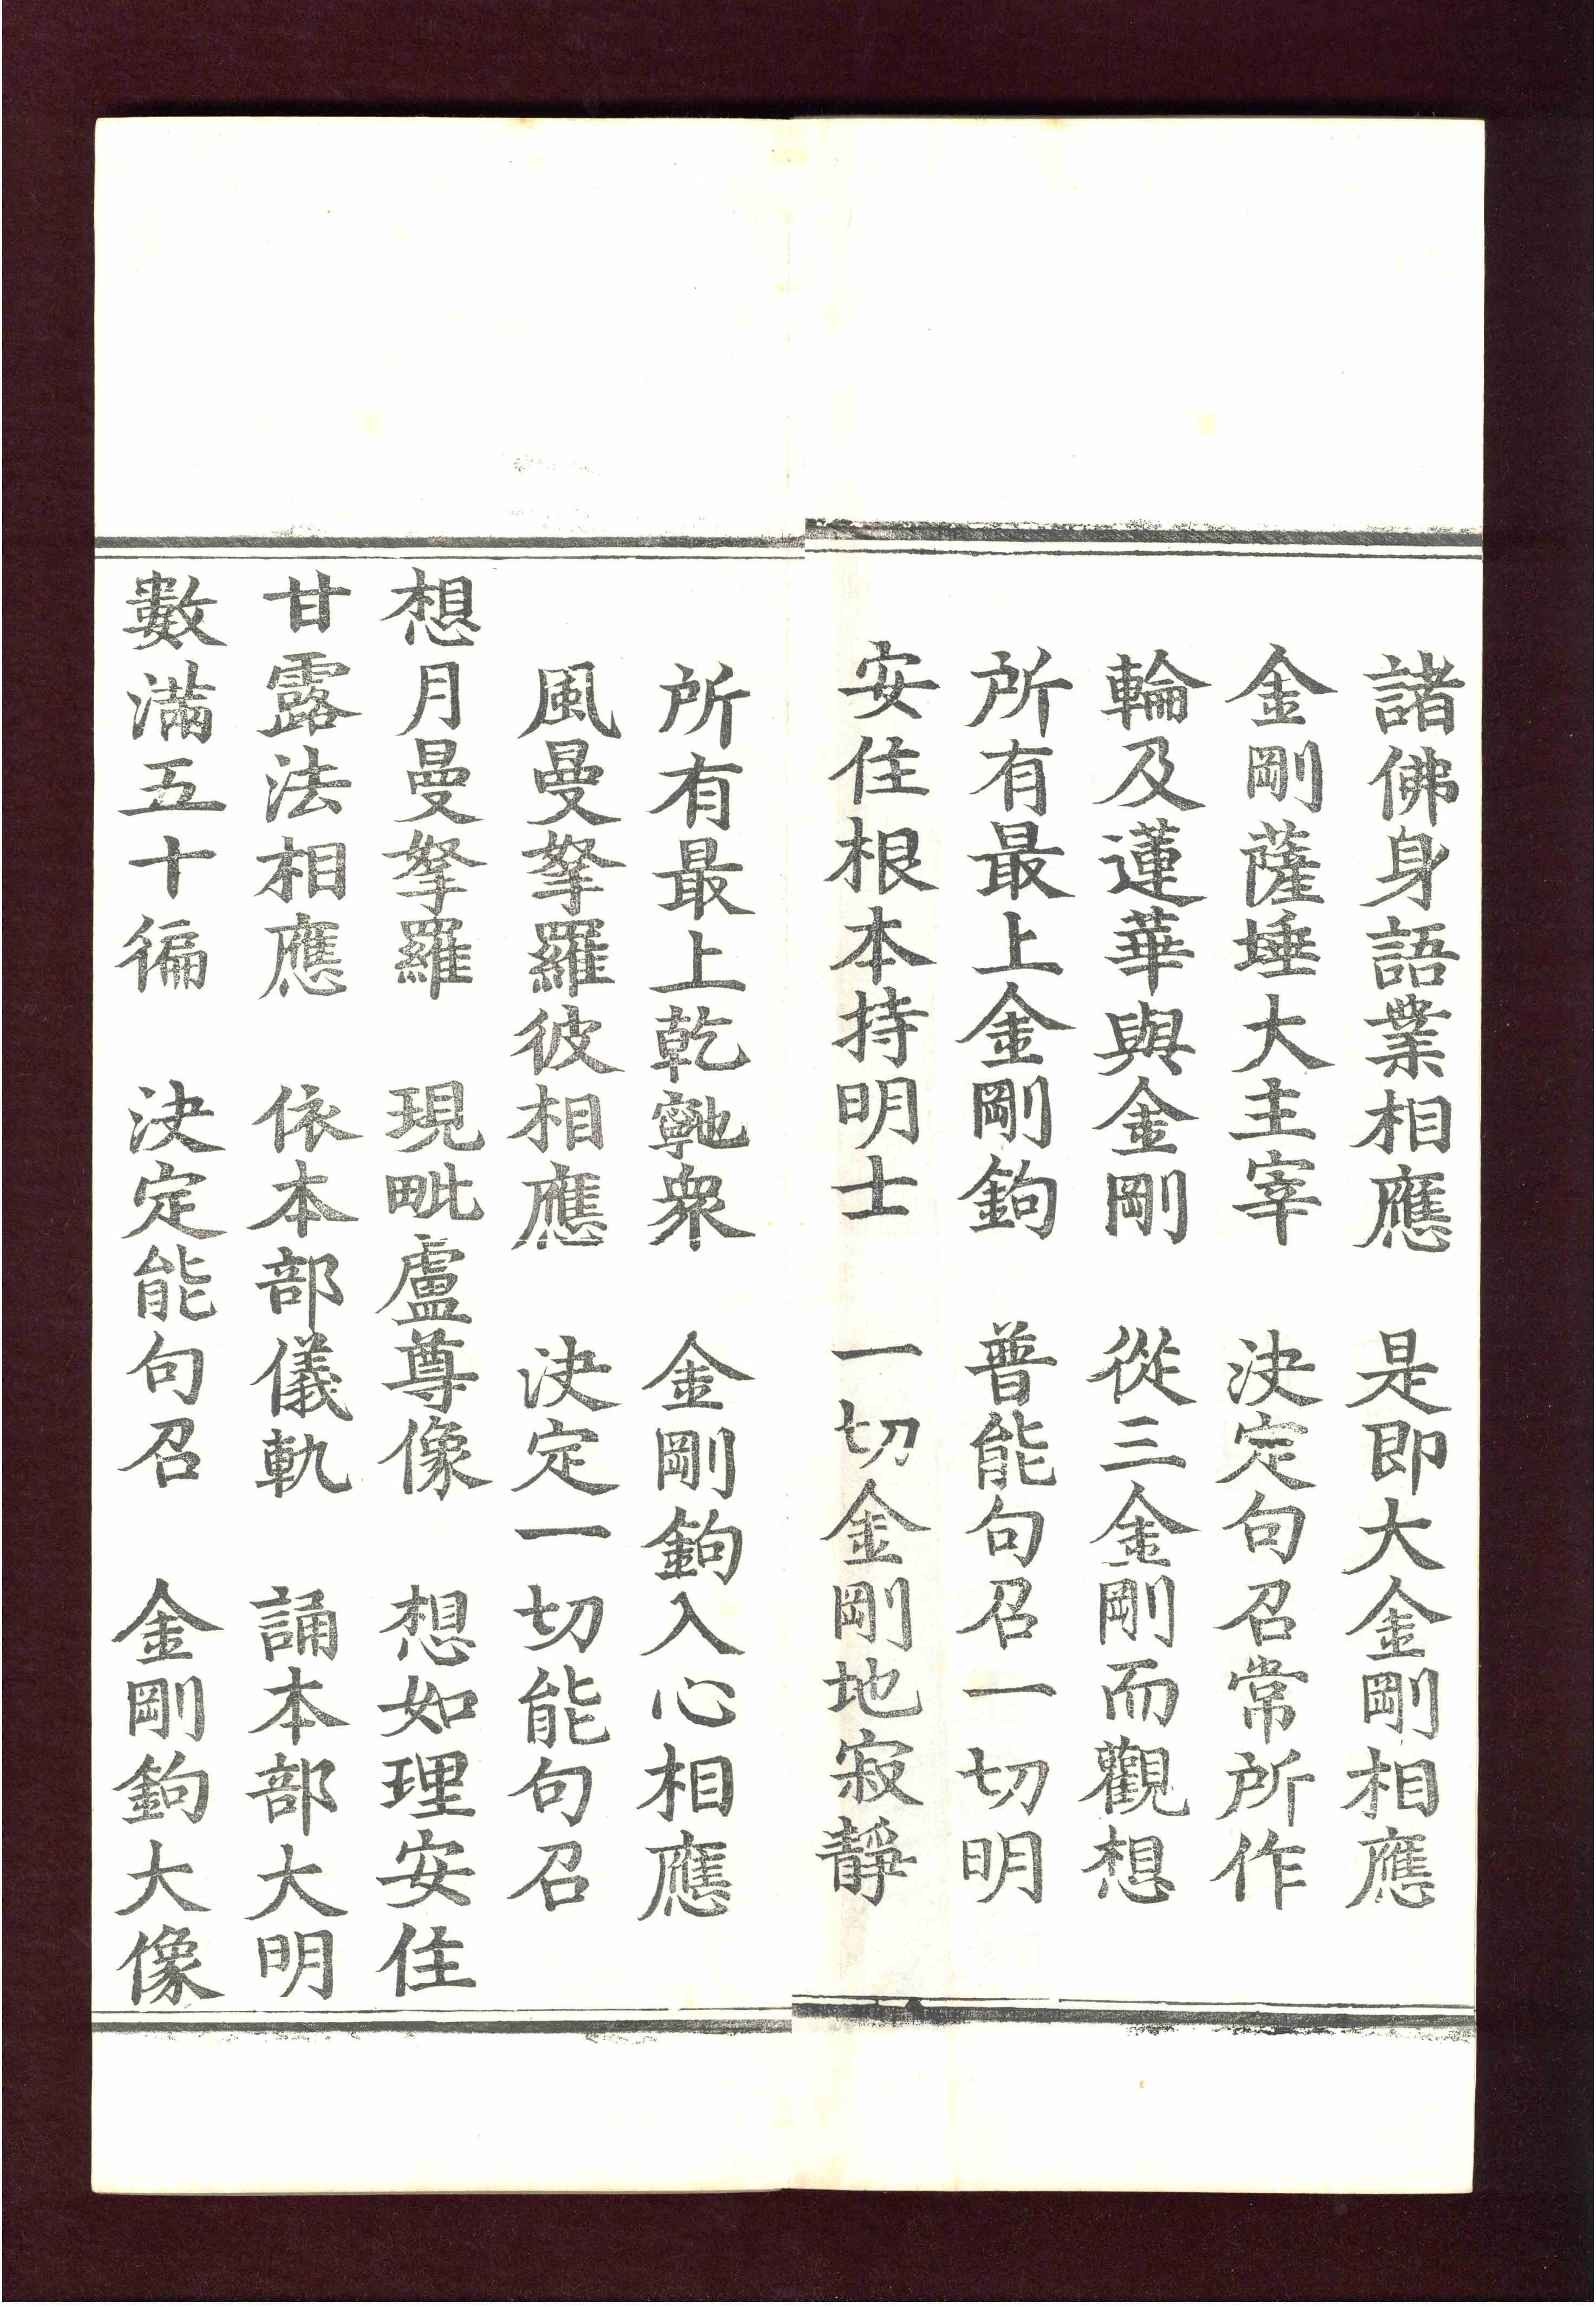 諸佛身語業相應　是即大金剛相應
金剛薩埵大主宰　決定句召常所作
輪及蓮華與金剛　從三金剛而觀想
所有最上金剛鉤　普能句召一切明
安住根本持明士　一切金剛地寂靜
所有最上乾𩦲衆　金剛鉤入心相應
風曼拏羅彼相應　決定一切能句召
想月曼拏羅　現毗盧尊像　想如理安住
甘露法相應　依本部儀軌　誦本部大明
數滿五十徧　決定能句召　金剛鉤大像